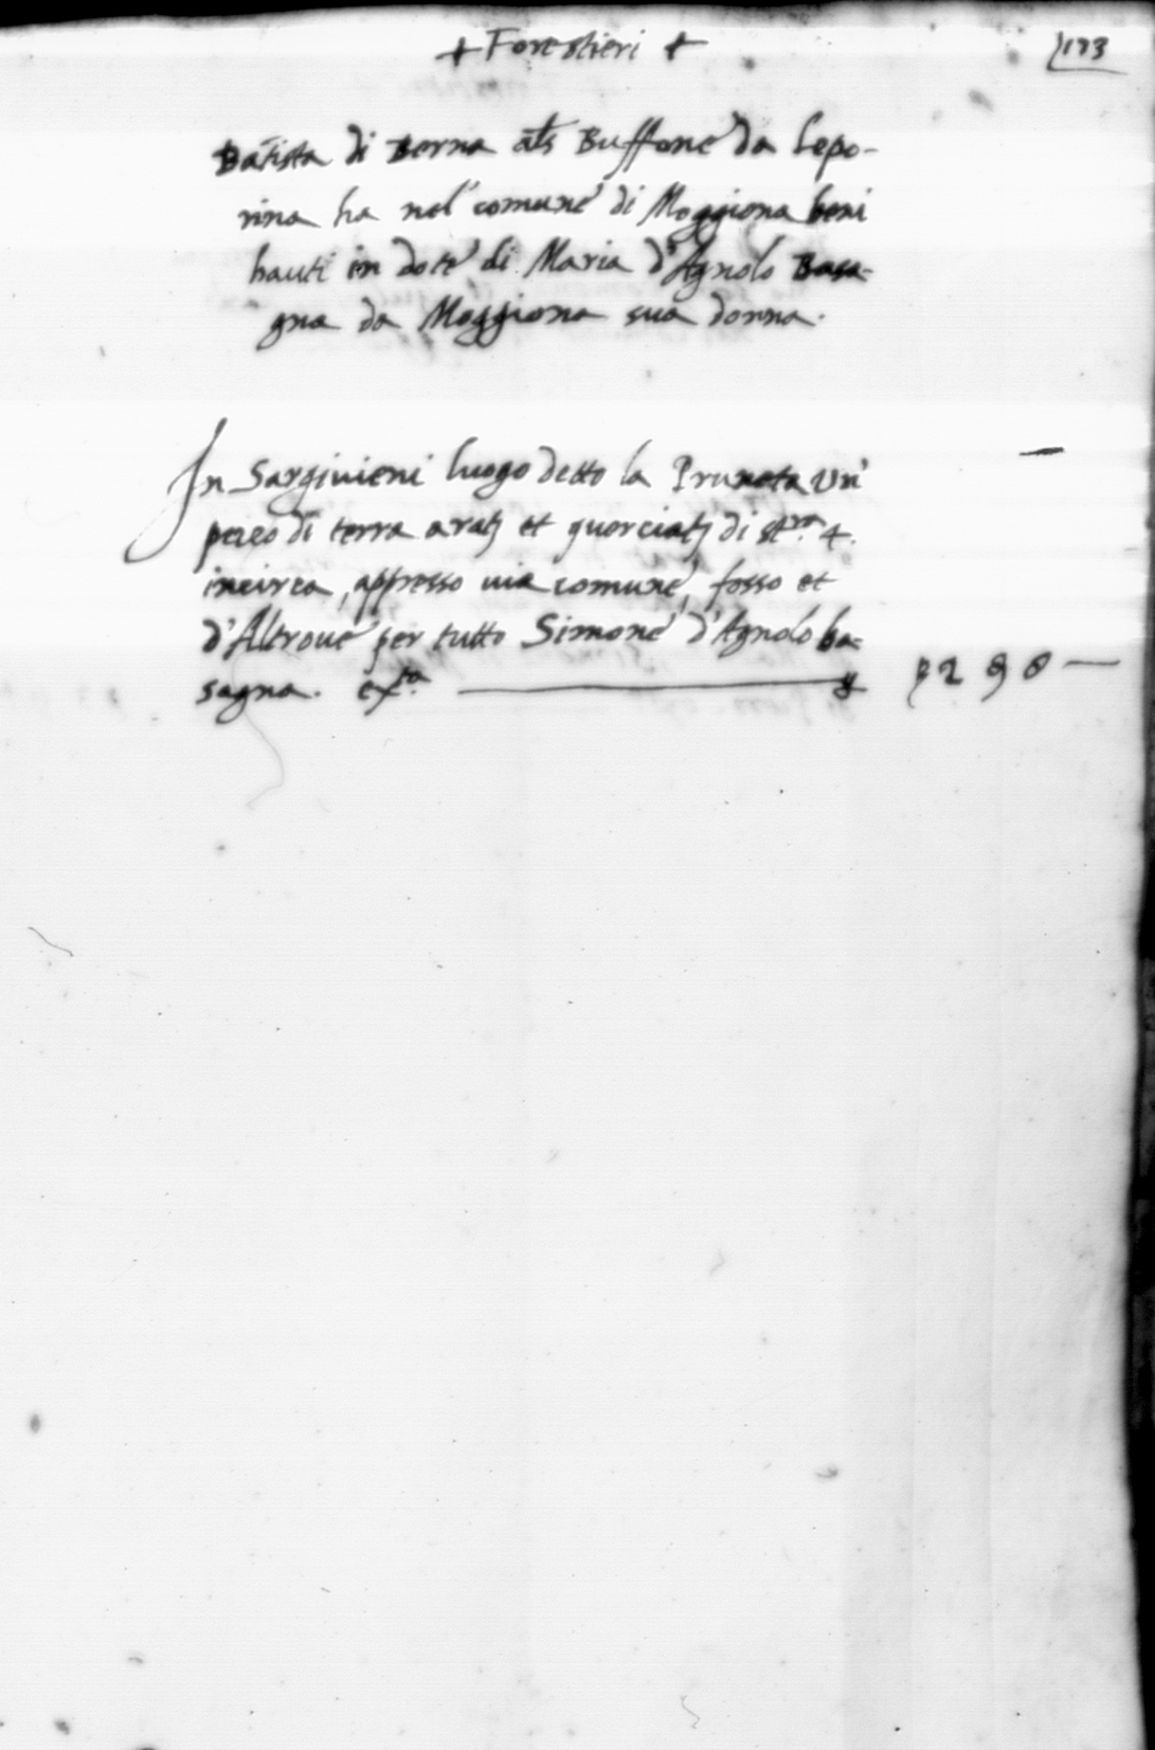 + Forestieri +
Batista di Berna als Buffone da Lepo-
rina ha nel comune di Moggiona beni
hauti in dote di Maria d'Agnolo Basa-
gna da Moggiona sua donna.
In Sargivieni luogo detto la Pruneta un
pezzo di terra arat et querciat di stra. 4.
incirca, appresso via comune, fosso et
d'Altroue per tutto Simone d'Agnolo ba-
sagna. exta.